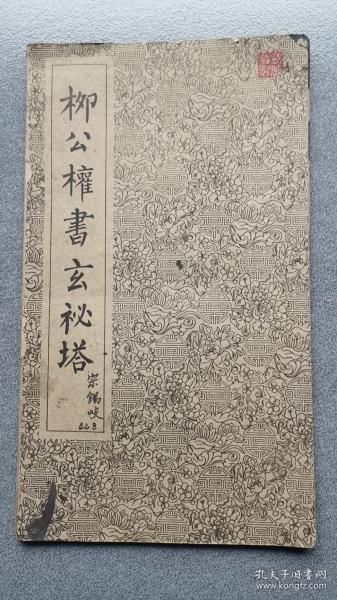 柳公權書玄祕塔
宗錫岐
62.8
孔夫子旧书网
book.kongfz.com